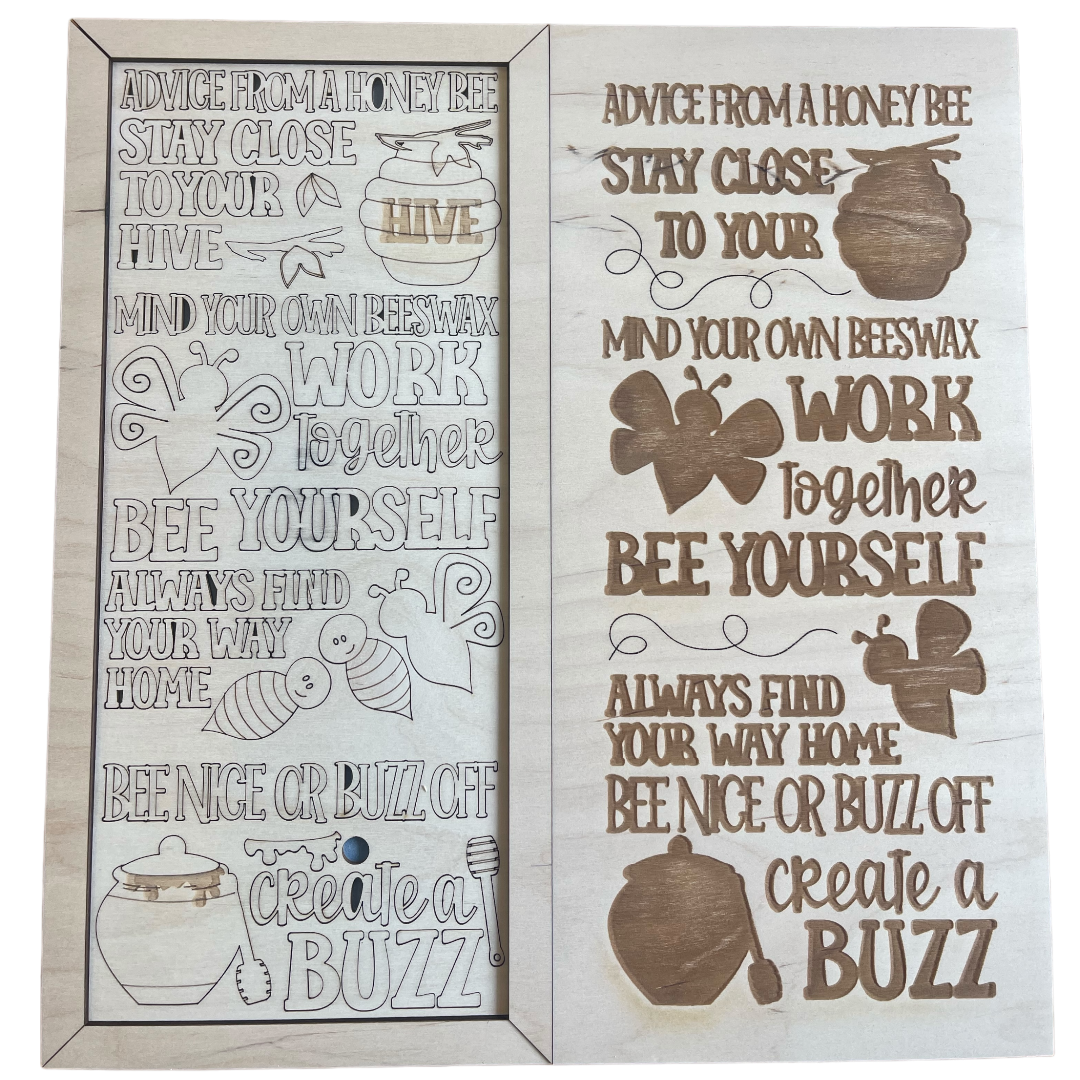 ADVICE FROM A HONEY BEE
STAY CLOSE
TO YOUR
HIVE
HIVE
MIND YOUR OWN BEESWAX
WORK
together
BEE YOURSELF
ALWAYS FIND
YOUR WAY
HOME
BEE NICE OR BUZZ OFF
create a
BUZZ
ADVICE FROM A HONEY BEE
STAY CLOSE
TO YOUR
MIND YOUR OWN BEESWAX
WORK
together
BEE YOURSELF
ALWAYS FIND
YOUR WAY HOME
BEE NICE OR BUZZ OFF
create a
BUZZ